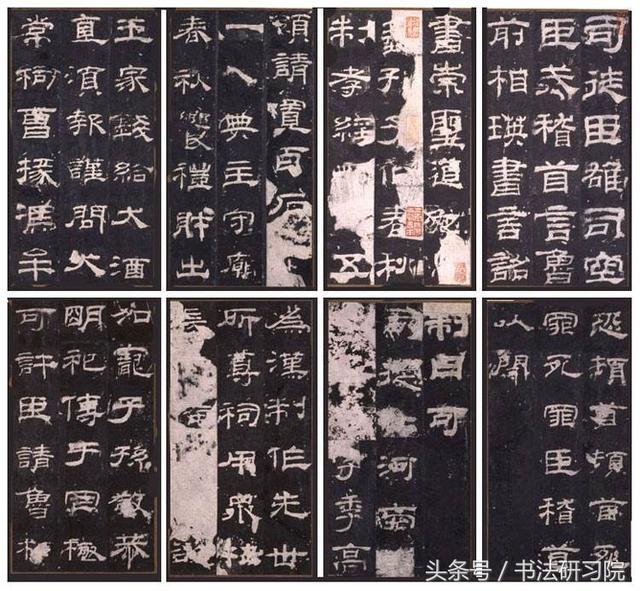 司徒臣雄司空
臣戒稽首言魯
前相瑛書言詔
書崇聖道勉
藝孔子作春秋
制孝經 五
頌請置百石
一人典主守廟
春秋饗禮財出
王家錢給犬酒
直須報謹問大
常祠曹掾馮牟
恐頓首頓首死
罪死罪臣稽首
以聞
制曰可
河南
字季高
為漢制作先世
所尊祠用眾牲
長
加寵子孫敬恭
明祀傳于罔極
可許臣請魯相
头条号 / 书法研习院